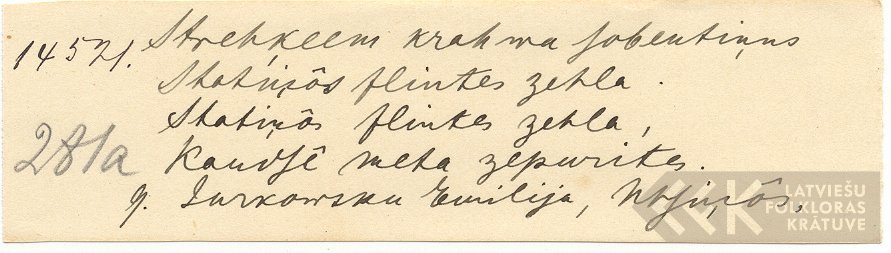 14521. Strehķeem krahwa sobentiņus
Statiņôs flintes zehla.
Statiņôs flintes zehla,
281a Kaudsê meta zepurites.
9. Jurkowsku Emilija,
LATVIEŠU FOLKLORAS KRĀTUVE